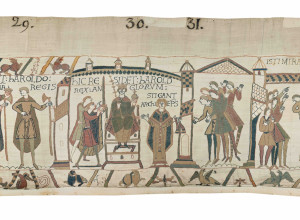 29. 30. 31.
ET: hAROLDO:
REGIS
hIC RE
SIDET: hAROLD
REX: ANGLORVM:
STIGANT
ARChIEPS
ISTI MIRANT